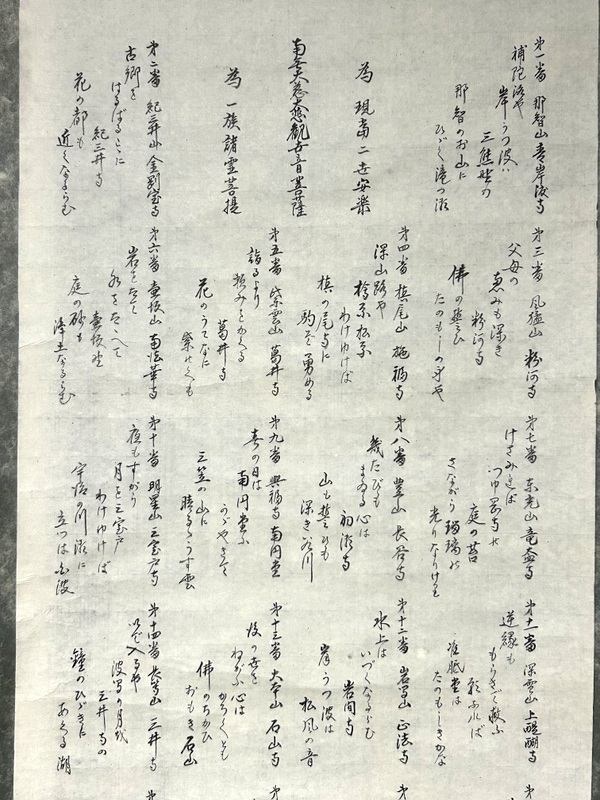 第一番 那智山 青岸渡寺
補陀洛や
岸うつ波は
三熊野の
那智のお山に
ひびく滝つ瀬
為 現当二世安楽
南無大慈大悲観世音菩薩
為 一族諸霊菩提
第二番 紀三井山 金剛宝寺
古郷を
はるばるここに
紀三井寺
花の都も
近くなるらむ
第三番 風猛山 粉河寺
父母の
恵みも深き
粉河寺
佛の誓ひ
たのもしの身や
第四番 槙尾山 施福寺
深山路や
檜原松原
わけゆけば
槙の尾寺に
駒ぞ勇める
第五番 紫雲山 葛井寺
詣るより
頼みをかくる
葛井寺
花のうてなに
紫せくも
第六番 壷坂山 南法華寺
岩をたて
水をたたへて
壷坂の
庭の砂も
浄土なるらむ
第七番 東光山 竜蓋寺
けさみれば
つゆ岡寺の
庭の苔
さながら瑠璃の
光りなりけり
第八番 豊山 長谷寺
幾たびも
まゐる心は
初瀬寺
山も誓ひも
深き谷川
第九番 興福寺 南円堂
春の日は
南円堂に
かゞやきて
三笠の山に
晴るるうす雲
第十番 明星山 三室戸寺
夜もすがら
月を三室戸
わけゆけば
宇治の川瀬に
立つは白波
第十一番 深雪山 上醍醐寺
逆縁も
もらさで救ふ
願ふれば
准胝堂は
たのもしきかな
第十二番 岩間山 正法寺
水上は
いづくなるらむ
岩間寺
岸うつ波は
松風の音
第十三番 大本山 石山寺
後の世を
ねがふ心は
かろくとも
佛のちかひ
おもき石山
第十四番 長等山 三井寺
いで入るや
波間の月を
三井寺の
鐘のひびきに
あくる湖